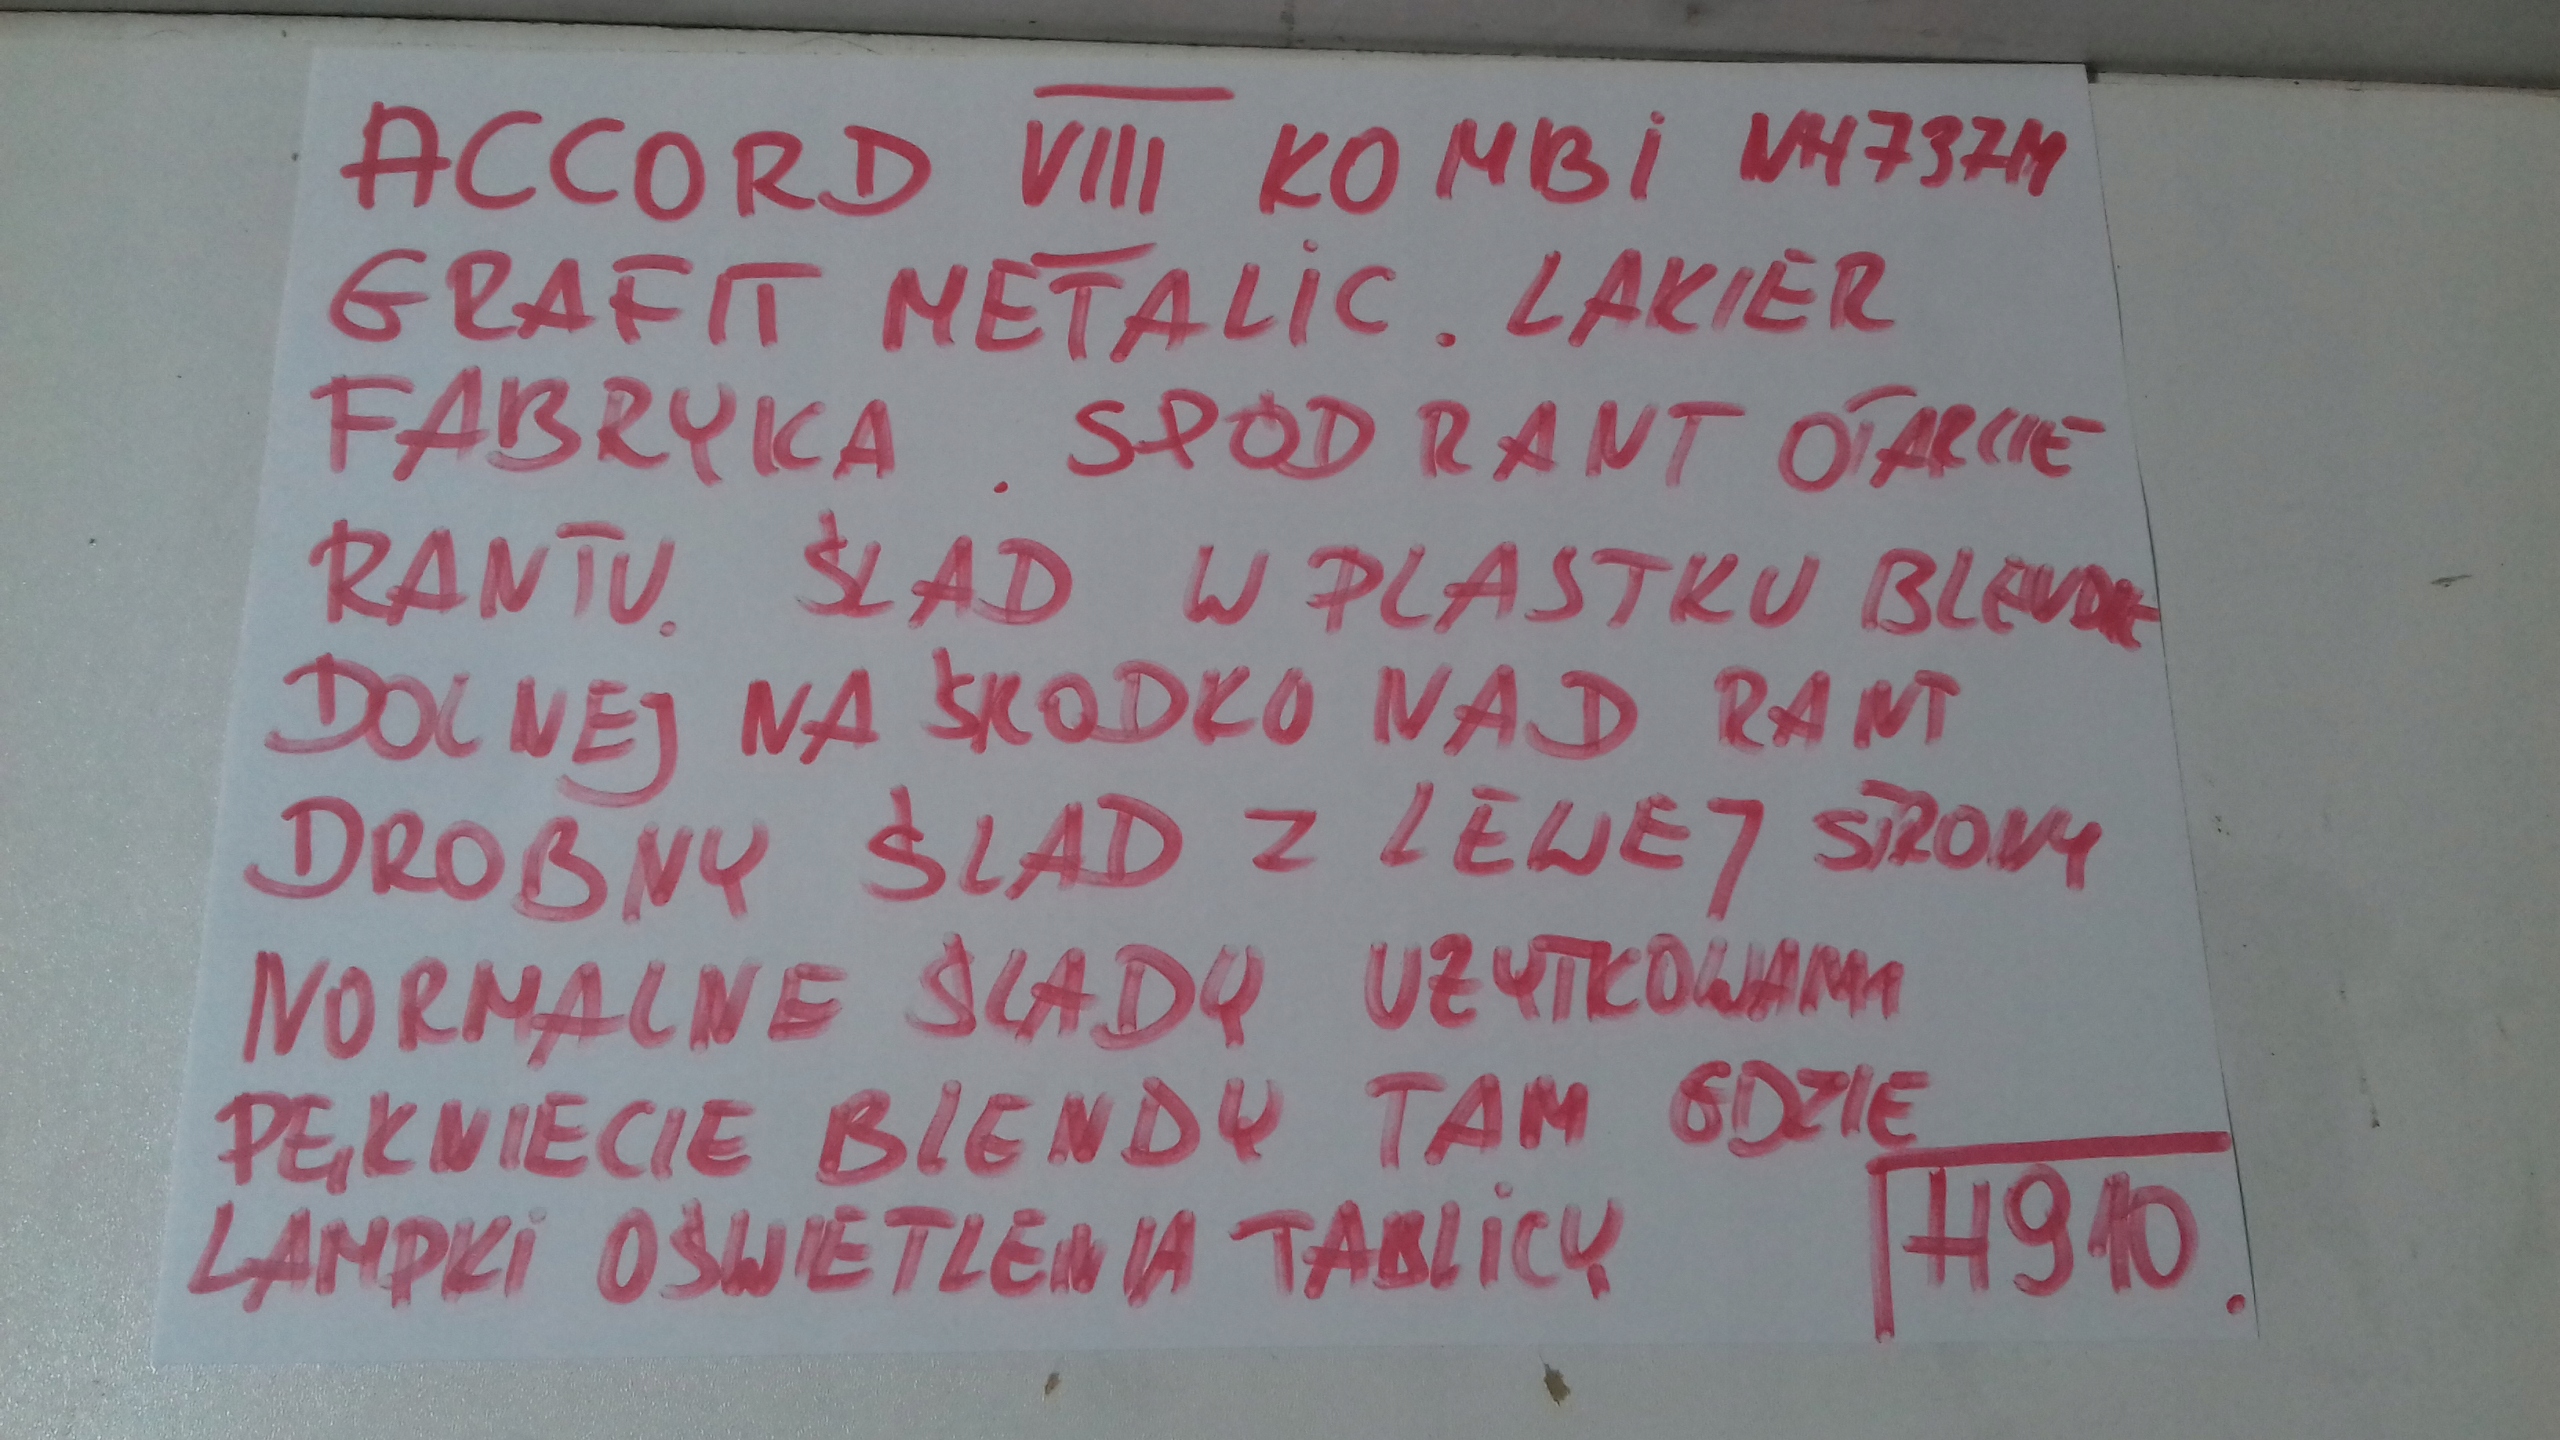 ACCORD VIII KOMBI NH737M
GRAFIT METALIC. LAKIER
FABRYKA. SPÓD RANT OTARCIE
RANTU. ŚLAD W PLASTKU BLENDIE
DOLNEJ NA ŚRODKO NAD RANT
DROBNY ŚLAD Z LEWEJ STRONY
NORMALNE ŚLADY UZYTKOWANIA
PĘKNIECIE BLENDY TAM GDZIE
LAMPKI OŚWIETLENIA TABLICY
H910.